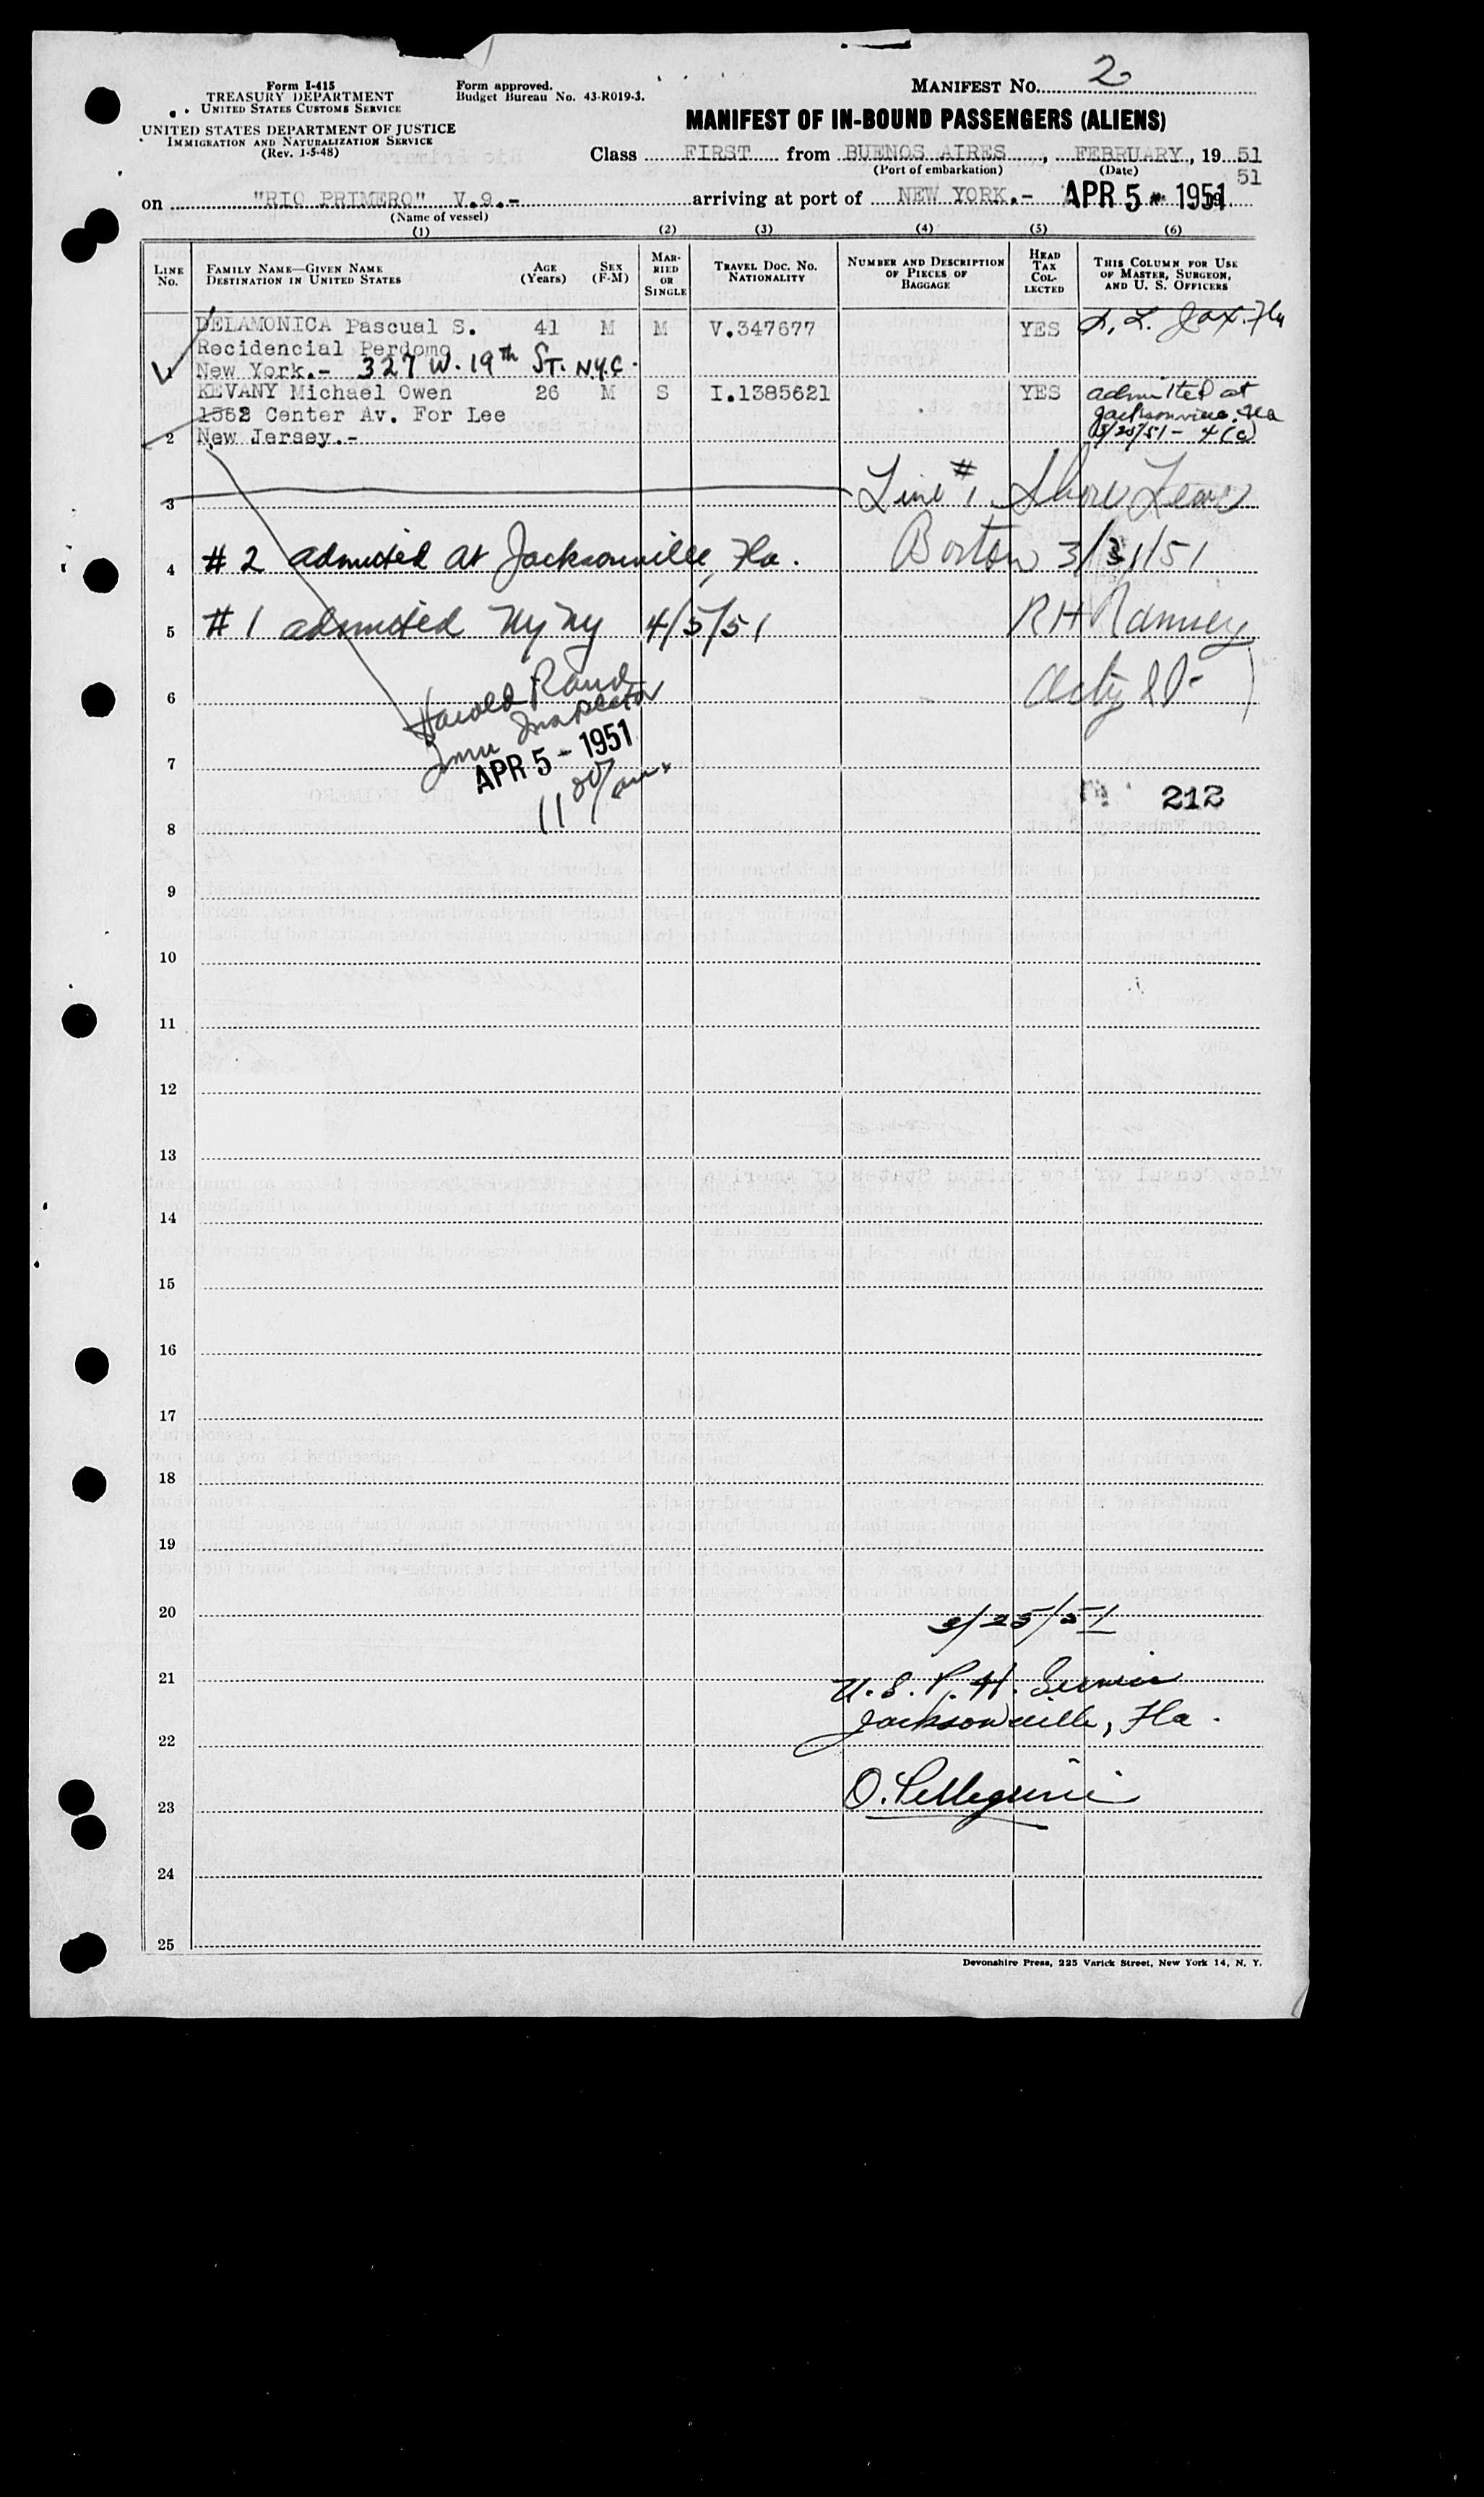 Form I-415
TREASURY DEPARTMENT
UNITED STATES CUSTOMS SERVICE
UNITED STATES DEPARTMENT OF JUSTICE
IMMIGRATION AND NATURALIZATION SERVICE
(Rev. 1-5-48)
Form approved.
Budget Bureau No. 43-R019-3.
MANIFEST No. 2
MANIFEST OF IN-BOUND PASSENGERS (ALIENS)
Class FIRST from BUENOS AIRES, FEBRUARY, 19 51
(Port of embarkation) (Date)
51
on "RIO PRIMERO" V.9.- arriving at port of NEW YORK.- APR 5 - 1951
(Name of vessel)
(1) (2) (3) (4) (5) (6)
LINE No.
FAMILY NAME—GIVEN NAME
DESTINATION IN UNITED STATES
AGE (Years)
SEX (F-M)
MARRIED OR SINGLE
TRAVEL DOC. NO. NATIONALITY
NUMBER AND DESCRIPTION OF PIECES OF BAGGAGE
HEAD TAX COLLECTED
THIS COLUMN FOR USE OF MASTER, SURGEON, AND U. S. OFFICERS
DELAMONICA Pascual S. 41 M M V.347677 YES S. L. Jax. Fla
Recidencial Perdomo
1 New York.- 327 W. 19th ST. N.Y.C.
KEVANY Michael Owen 26 M S I.1385621 YES admitted at
1562 Center Av. For Lee Jacksonville, Fla
2 New Jersey.- 3/25/51 - 4(c)
3 Line #1 Shore Leave
4 #2 admitted at Jacksonville, Fla. Boston 3/31/51
5 #1 admitted NY NY 4/5/51 RH Ramsey
6 Harold Rand
Imm Inspector
7 APR 5 - 1951
11 00/am.
212
8
9
10
11
12
13
14
15
16
17
18
19
20 3/25/51
21 U.S.P.H. Service
22 Jacksonville, Fla.
23 O. Pellegrini
24
25
Devonshire Press, 225 Varick Street, New York 14, N. Y.